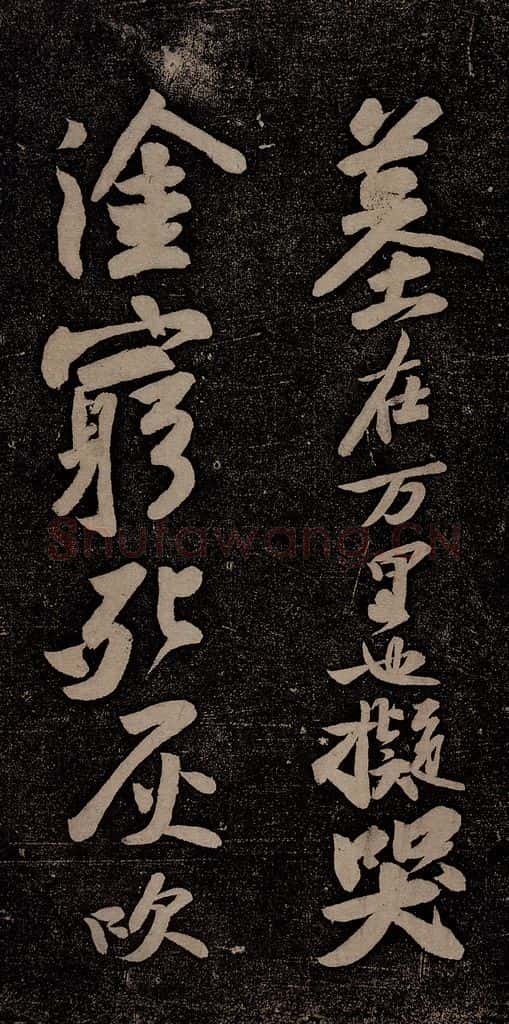 墓在万里也擬哭
塗窮死灰吹
Shufawang.CN